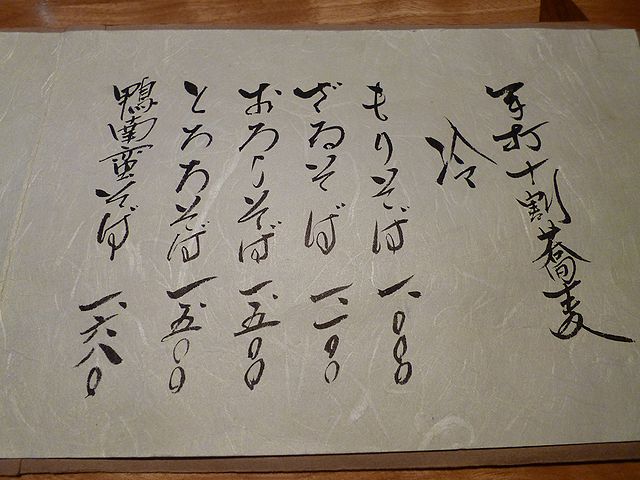 手打十割蕎麦
冷
もりそば 一、〇〇〇
ざるそば 一、一〇〇
おろしそば 一、五〇〇
とろろそば 一、五〇〇
鴨南蛮そば 一、六八〇